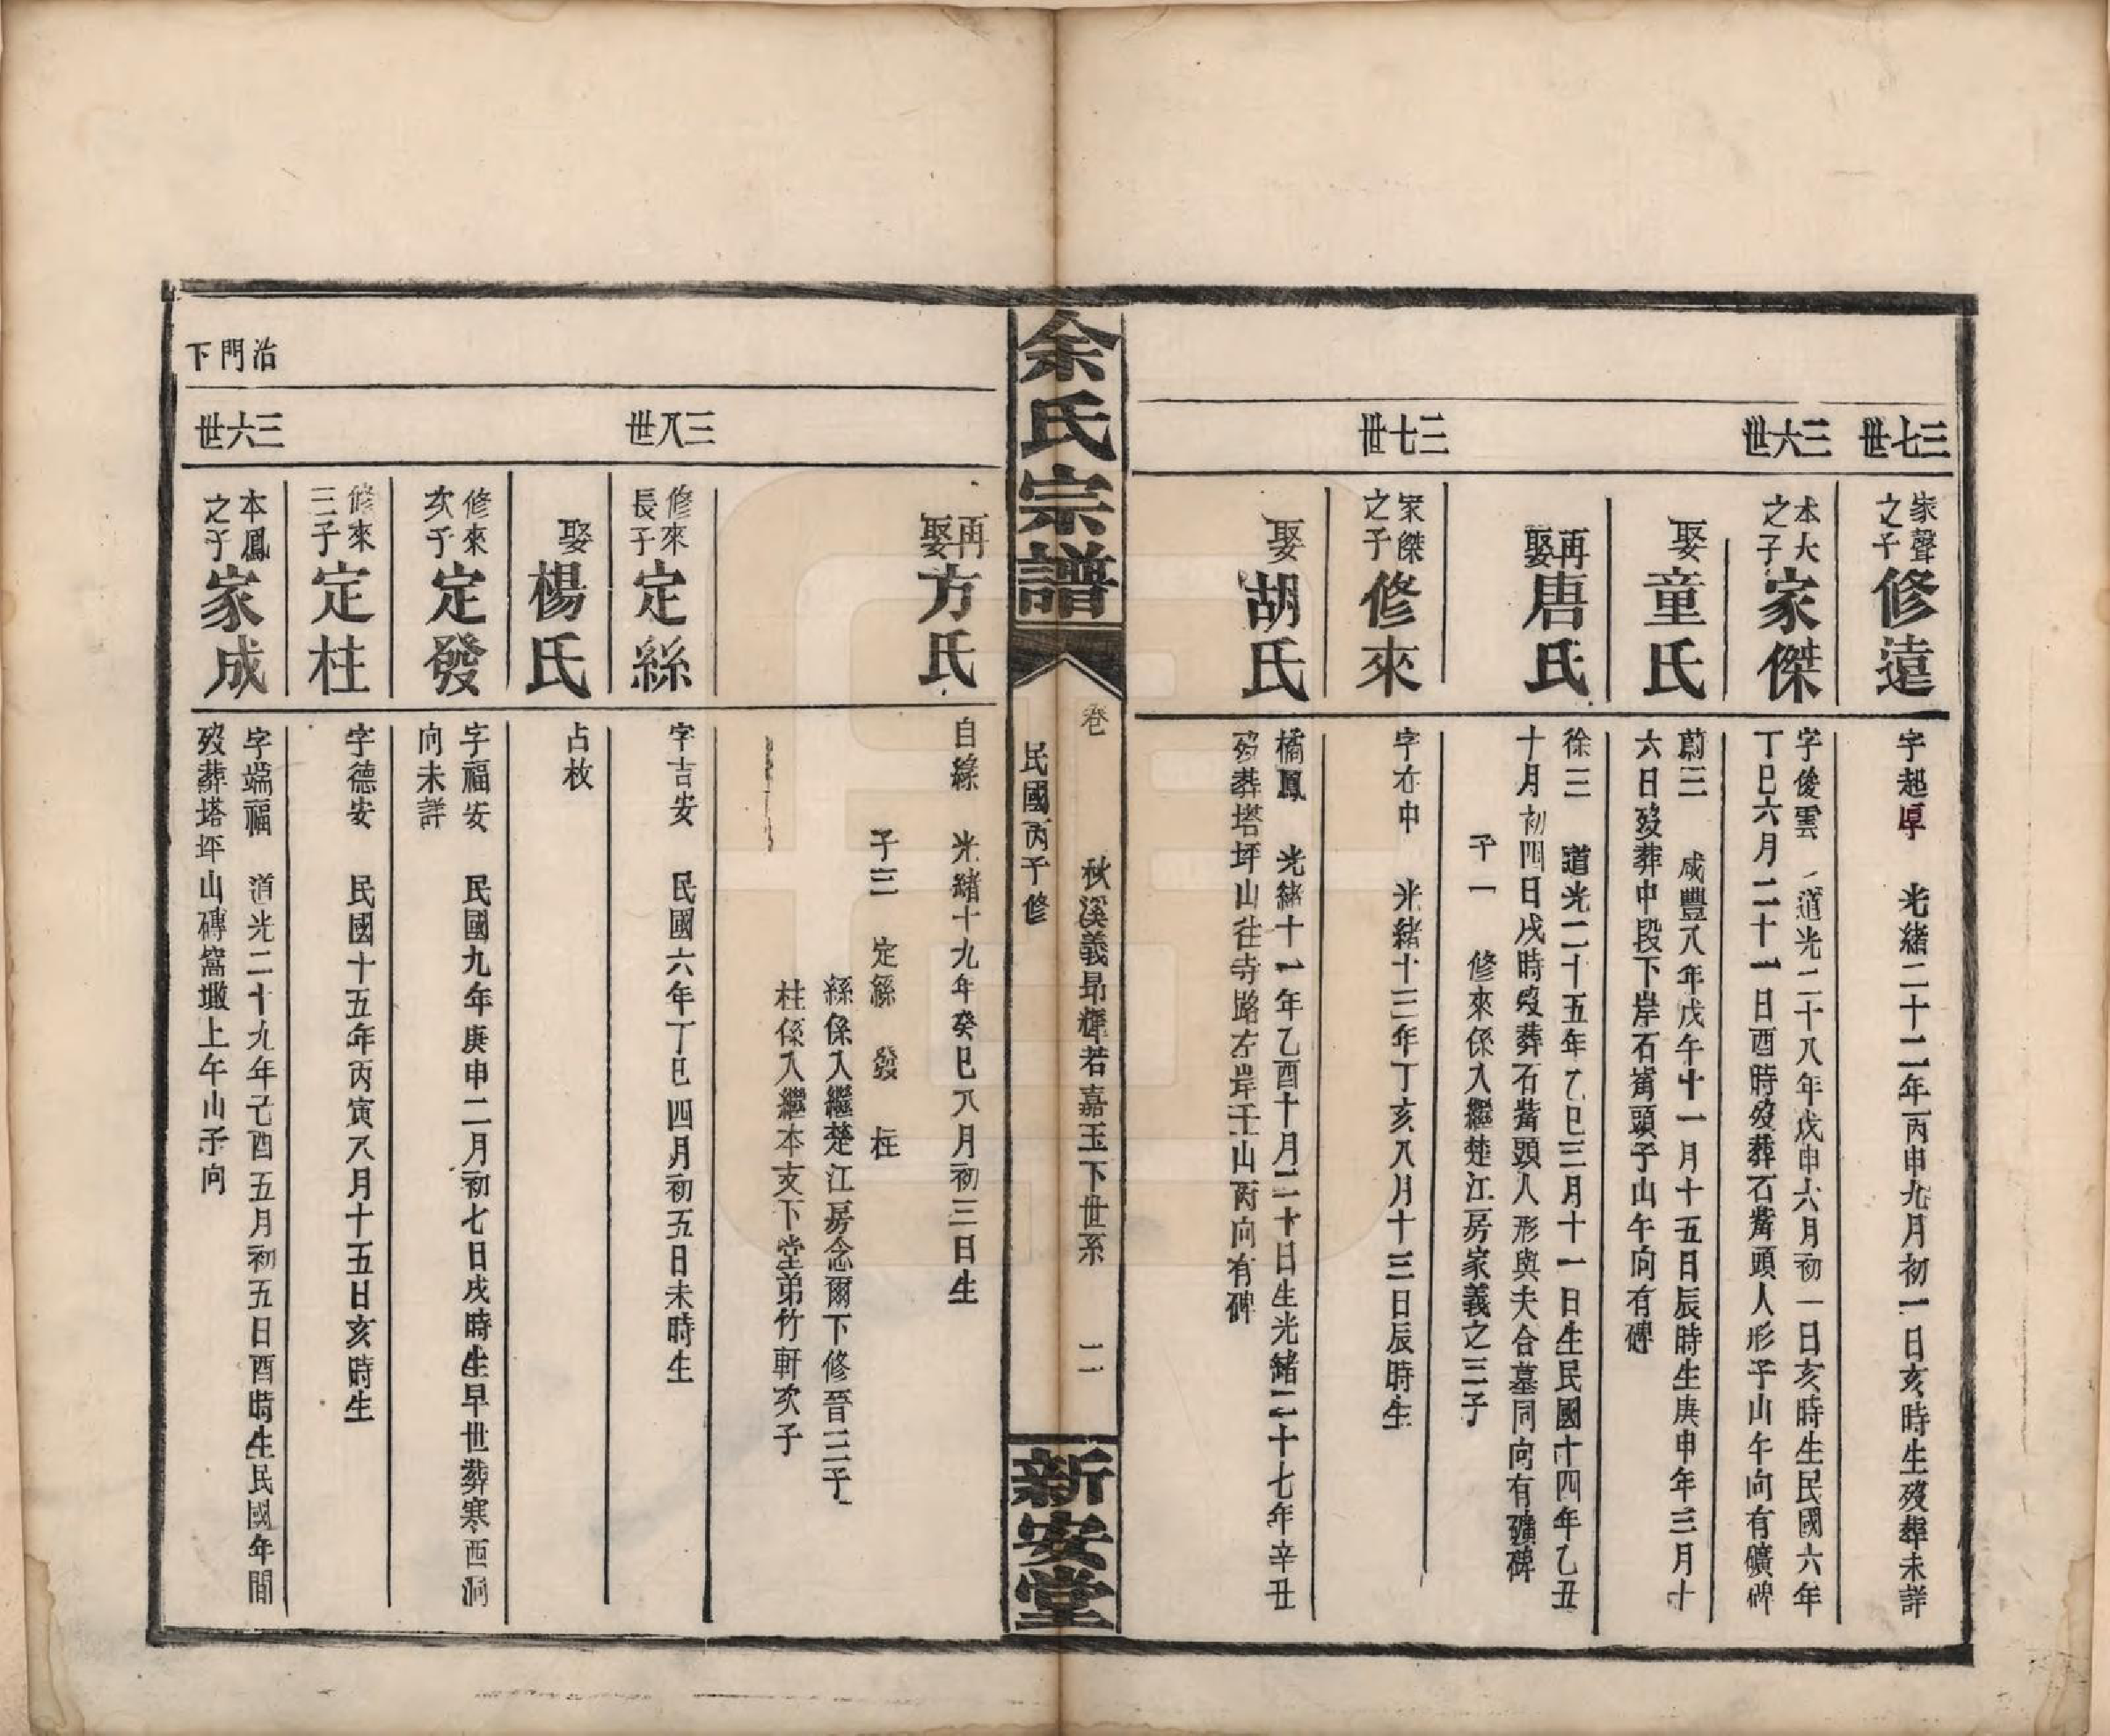 三七世
家聲之子
修遠
字起厚 光緒二十二年丙申九月初一日亥時生歿葬未詳
三六世
本大之子
家傑
字俊雲 道光二十八年戊申六月初一日亥時生民國六年
丁巳六月二十一日酉時歿葬石觜頭人形子山午向有礦碑
娶
童氏
蔚三 咸豐八年戊午十一月十五日辰時生庚申年三月十
六日歿葬中段下岸石觜頭子山午向有磚
再娶
唐氏
徐三 道光二十五年乙巳三月十一日生民國十四年乙丑
十月初四日戌時歿葬石觜頭人形與夫合墓同向有礦碑
子一 修來係入繼楚江房家義之三子
三七世
家傑之子
修來
字在中 光緒十三年丁亥八月十三日辰時生
娶
胡氏
橘鳳 光緒十一年乙酉十月二十日生光緒二十七年辛丑
歿葬塔坪山往寺路左岸壬山丙向有碑
余氏宗譜
卷 秋溪義昂輝若嘉玉下世系 二
民國丙子修
新安堂
再娶
方氏
自綠 光緒十九年癸巳八月初三日生
子三 定絲 發 柱
絲係入繼楚江房念爾下修晉三子
柱係入繼本支下堂弟竹軒次子
三八世
修來長子
定絲
字吉安 民國六年丁巳四月初五日未時生
娶
楊氏
占枚
修來次子
定發
字福安 民國九年庚申二月初七日戌時生早世葬寒西洞
向未詳
修來三子
定柱
字德安 民國十五年丙寅八月十五日亥時生
治門下
三六世
本鳳之子
家成
字端福 道光二十九年己酉五月初五日酉時生民國年間
歿葬塔坪山磚窩墩上午山子向